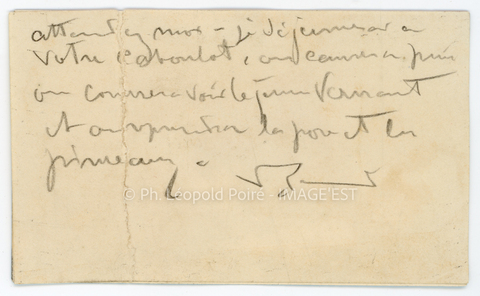 attendez moi - je déjeunerai a
votre caboulot, on causera puis
on commera voir le jeune Vernant
et on reprendra la et les
pinceaux.
© Ph. Léopold Poiré - IMAGE'EST